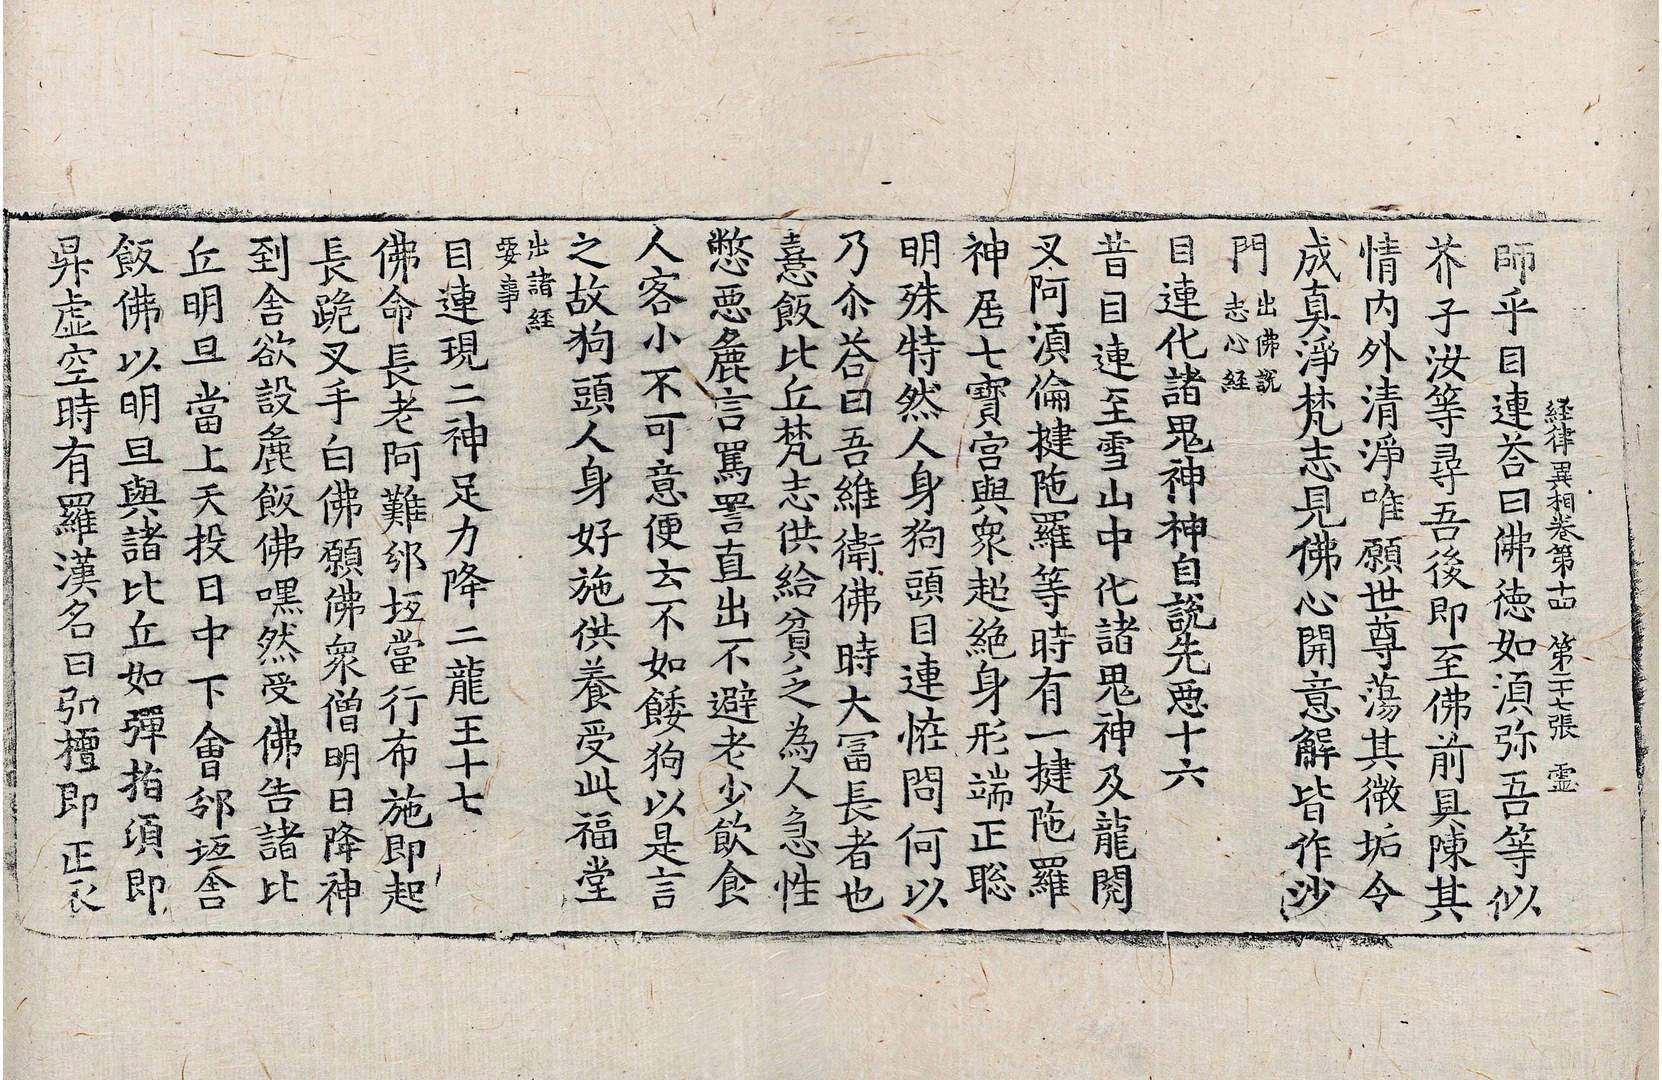 経律異相卷第十四　第二十七張　霊
師乎目連荅曰佛徳如湏弥吾等似
芥子汝等尋吾後即至佛前具陳其
情內外清淨唯願世尊蕩其微垢令
成真淨梵志見佛心開意解皆作沙
門出佛說志心経
目連化諸鬼神神自說先惡十六
昔目連至雪山中化諸鬼神及龍閱
叉阿湏倫揵陁羅等時有一揵陁羅
神居七寶宫與衆超絶身形端正聡
明殊特然人身狗頭目連恠問何以
乃尒荅曰吾維衛佛時大冨長者也
憙飯比丘梵志供給貧乏為人急性
憋惡麁言罵詈直出不避老少飲食
人客小不可意便云不如餧狗以是言
之故狗頭人身好施供養受此福堂
出諸経要事
目連現二神足力降二龍王十七
佛命長老阿難邠坻當行布施即起
長跪叉手白佛願佛衆僧明日降神
到舍欲設麁飯佛嘿然受佛告諸比
丘明旦當上天投日中下會邠坻舍
飯佛以明旦與諸比丘如彈指湏即
昇虛空時有羅漢名曰㔫檀即正衣